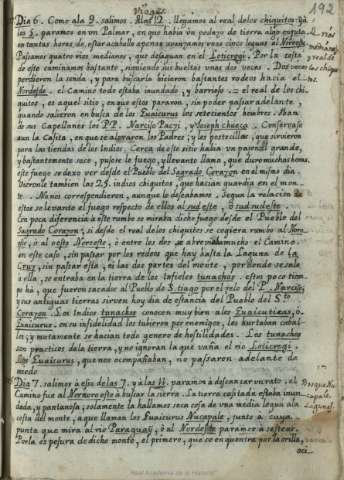 Viage
192
Dia 6. Como a la 9. salimos. A las 12. llegamos al real de los chiquitos: y à
los 3. paramos en un Palmar, en que havia un pedazo de tierra algo enjuta.
en tantas horas de estar acaballo apenas avanzamos unas cinco leguas al Noroeste
Pasamos quatro rios medianos, que desaguan en el Lotiregi. Por la costa
de este caminamos bastante, comiendo sus bueltas unas dos veces. Dos veces
perdieron la senda, y para buscarla hicieron bastantes rodeos hacia el
Nordeste. el Camino todo estaba inundado, y barriaso. = el real de los chi-
quitos, es aquel sitio, en que estos pararon, sin poder pasar adelante,
quando salieron en busca de los Euaicurus los setecientos hombres. Iban
de sus Capellanes los PP. Narciso Patzi, y Joseph Chueca. Conservase
aun la Casita, en que se alvergaron los Padres; y los postecillos, que sirvieron
para las tiendas de los Indios. Cerca de este sitio habia un pajonal grande,
y bastantemente seco, pusose le fuego, y levanto llama, que duro mucha hora.
este fuego se dexo ver desde el Pueblo del Sagrado Corazon en el mismo dia.
Vieronle tambien los 25. indios chiquitos, que hacian guardia en el mon-
te. Nunca correspondieron, aunque lo deseabamos. Segun la relacion de
estos se levantó el fuego respecto de ellos al sud este, ò sud sudeste.
Con poca diferencia à este rumbo se miraba dicho fuego desde el Pueblo del
Sagrado Corazon. si desde el real de los chiquitos se cogiera rumbo al Noro-
este, ò al oeste Noroeste, ò entre los dos se abreviaria mucho el Camino.
en este caso, sin pasar por los rodeos que hay hasta la Laguna de la
Cruz, sin pasar esta, ni las dos partes del monte,
orilla, se entraba en la tierra de los infieles tunachos. estos poco tiem-
po hà, que fueron sacados al Pueblo de S. tiago por el zelo del P. Narciso,
y sus antiguas tierras sirven hoy dia de estancia del Pueblo del S.to
Corazon. Los Indios tunachos conocen muy bien a los Euaicuticas, ò
Euaicurus. en su infidelidad los tubieron por enemigos, les hurtaban caba-
los, y mutuamente se hacian todo genero de hostilidades. Los tunachos
son practicos de la tierra, y no ignoran la que baña el rio Lotiregi.
Los Euaicurus, que nos acompañaban, no pasaron adelante de
miedo
Dia 7. salimos à eso de las 7. y à las 11. paramos à descansar un rato. el
Camino fue al Nornoroeste à buscar la sierra. La tierra casi toda estaba inun-
dada, y pantanosa, solamente la hallamos seca cosa de una media legua à la
costa del monte, a que llaman los Euaicurus Nucapale, junto à cuya
punta que mira al rio Paraguay, ò al Nordeste paramos à sestear.
Por la espesura de dicho monte, el primero, que se encuentra por la orilla,
Real Academia de la Historia